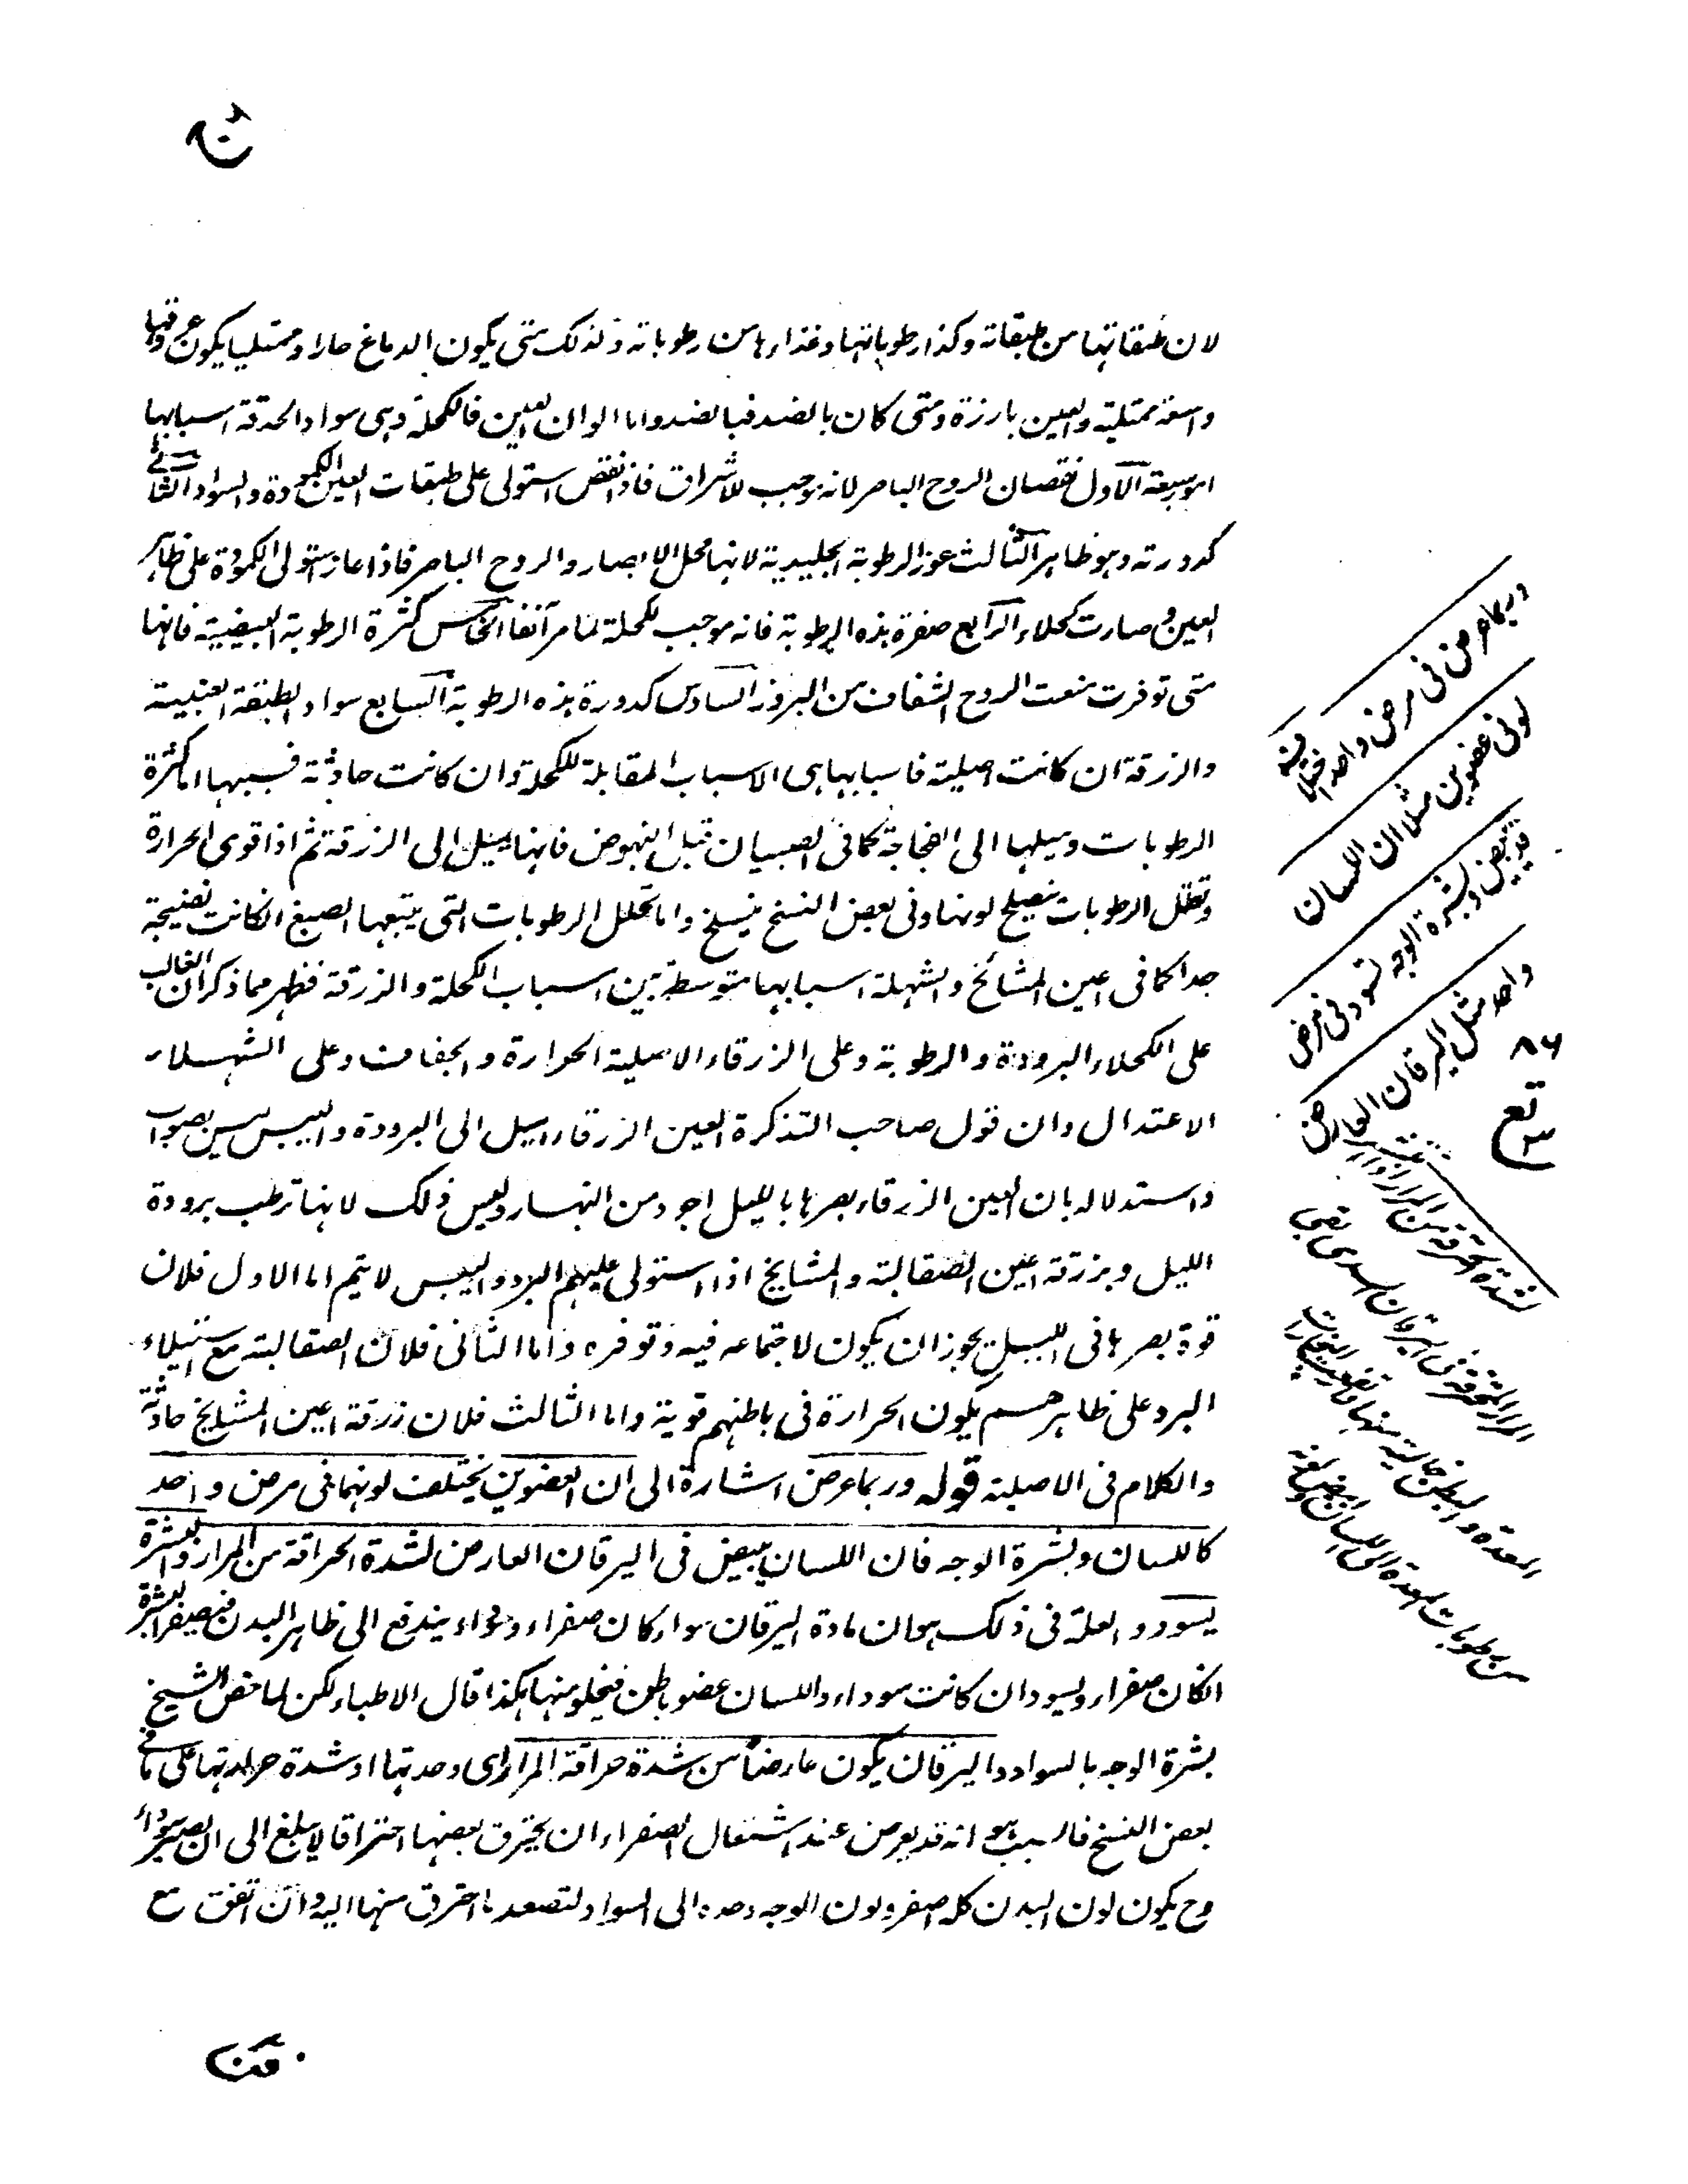 لان طبقاتها من طبقاته وكذا رطوباتها وغذاءها من رطوباته ولذلك متى يكون الدماغ حارا وممتليا يكون عروقها
واسعة ممتلية والعين بارزة ومتى كان بالضد فبالضد واما الوان العين فالكحلة وهى سواد الحدقة اسبابها
سبعة الاول نقصان الروح الباصر لانه موجب للاشراق فاذا نقص استولى على طبقات العين الكمودة والسواد الثانى
كدورته وهو ظاهر الثالث عوز الرطوبة الجليدية لانها محل الابصار والروح الباصر فاذا عاز استولى الكمودة على ظاهر
العين وصارت كحلاء الرابع صغر هذه الرطوبة فانه موجب للكحلة لما مر آنفا الخامس كثرة الرطوبة البيضية فانها
متى توفرت منعت الروح الشفاف من البروز السادس كدورة هذه الرطوبة السابع سواد الطبقة العنبية
والزرقة ان كانت اصلية فاسبابها هى الاسباب المقابلة للكحلة وان كانت حادثة فسببها اما كثرة
الرطوبات وميلها الى الفجاجة كما فى الصبيان قبل النهوض فانها يميل الى الزرقة ثم اذا قوى الحرارة
وتقلل الرطوبات ينصلح لونها وفى بعض النسخ ينسلخ واما تحلل الرطوبات التى يتبعها الصبغ الكانت نضيجة
جدا كما فى اعين المشائخ والشهلة اسبابها متوسطة بين اسباب الكحلة والزرقة فظهر مما ذكر ان الغالب
على الكحلاء البرودة والرطوبة وعلى الزرقاء الاصلية الحرارة والجفاف وعلى الشهلاء
الاعتدال وان قول صاحب التذكرة العين الزرقاء اميل الى البرودة واليبس ليس بصواب
واستدلاله بان العين الزرقاء بصرها بالليل اجود من النهار وليس ذلك لانها ترطب برودة
الليل وبزرقة اعين الصقالبة والمشايخ اذا استولى عليهم البرد واليبس لا يتم اما الاول فلان
قوة بصرها فى الليل يجوز ان يكون لاجتماعه فيه وتوفره واما الثانى فلان الصقالبة مع استيلاء
البرد على ظاهرهم يكون الحرارة فى باطنهم قوية واما الثالث فلان زرقة اعين المشايخ حادثة
والكلام فى الاصلية قوله وربما عرض اشارة الى ان العضوين يختلف لونهما فى مرض واحد
كاللسان وبشرة الوجه فان اللسان يبيض فى اليرقان العارض لشدة الحراقة من المرار والبشرة
يسود والعلة فى ذلك هو ان مادة اليرقان سواء كان صفراء وسوداء يندفع الى ظاهر البدن فيصفر البشرة
انكان صفراء ويسود ان كانت سوداء واللسان عضو باطن فيخلو منها هكذا قال الاطباء لكن لما خص الشيخ
بشرة الوجه بالسواد واليرقان يكون عارضا من شدة حراقة المرار اى وحدتها او شدة حرارتها على ما فى
بعض النسخ فالسبب هو انه قد يعرض عند اشتعال الصفراء ان يحترق بعضها احتراقا لا يبلغ الى ان يصير سوداء
وح يكون لون البدن كله اصفر ولون الوجه وحده الى السواد لتصعد ما احترق منها اليه وان اتفق مع
وربما عرض فى مرض واحد
لونى عضوين مثلا ان اللسان
قد يبيض وبشرة الوجه تسود فى مرض
واحد مثل اليرقان العارض
لشدة الحرقة من المرار
٨٦